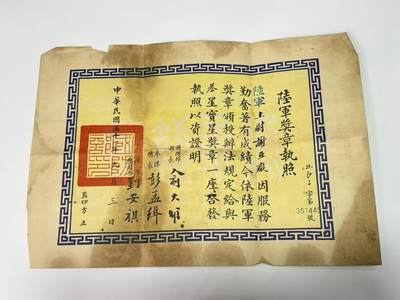 陸軍獎章執照
陸軍上尉謝
因服務
勤奮著有成績今依陸軍
獎章頒授辦法規定給與
星寶星獎章一座合發
執照以資證明
俞大維
彭孟緝
劉安祺
中華民國五十
三日
字第
號
監印方